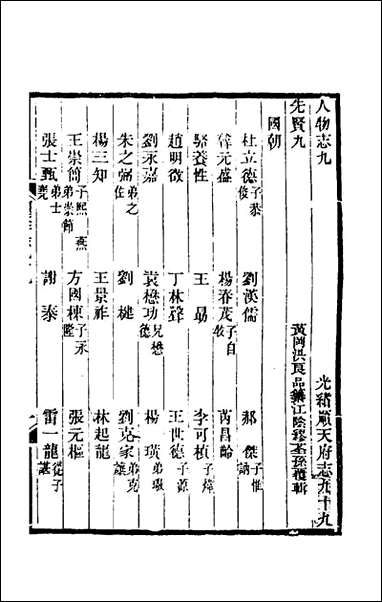 人物志九　光緒順天府志九十九
先賢九　黃岡洪良品纂江陰繆荃孫覆輯
國朝
杜立德子恭俊　劉漢儒　郝傑子惟訥
元盛　楊春茂子自牧　芮昌齡
駱養性　王勗　李可楨子煒
趙明徵　丁林聲　王世德子源
劉永嘉　袁懋功兄懋德　楊璜弟璥
朱之弼弟之佐　劉楗　劉克家弟克讓
楊三知　王景祚　林起龍
王崇簡子熙　燕　弟崇節　方國棟子永　張元樞
張士甄弟士　謝泰　雷一龍從子諶